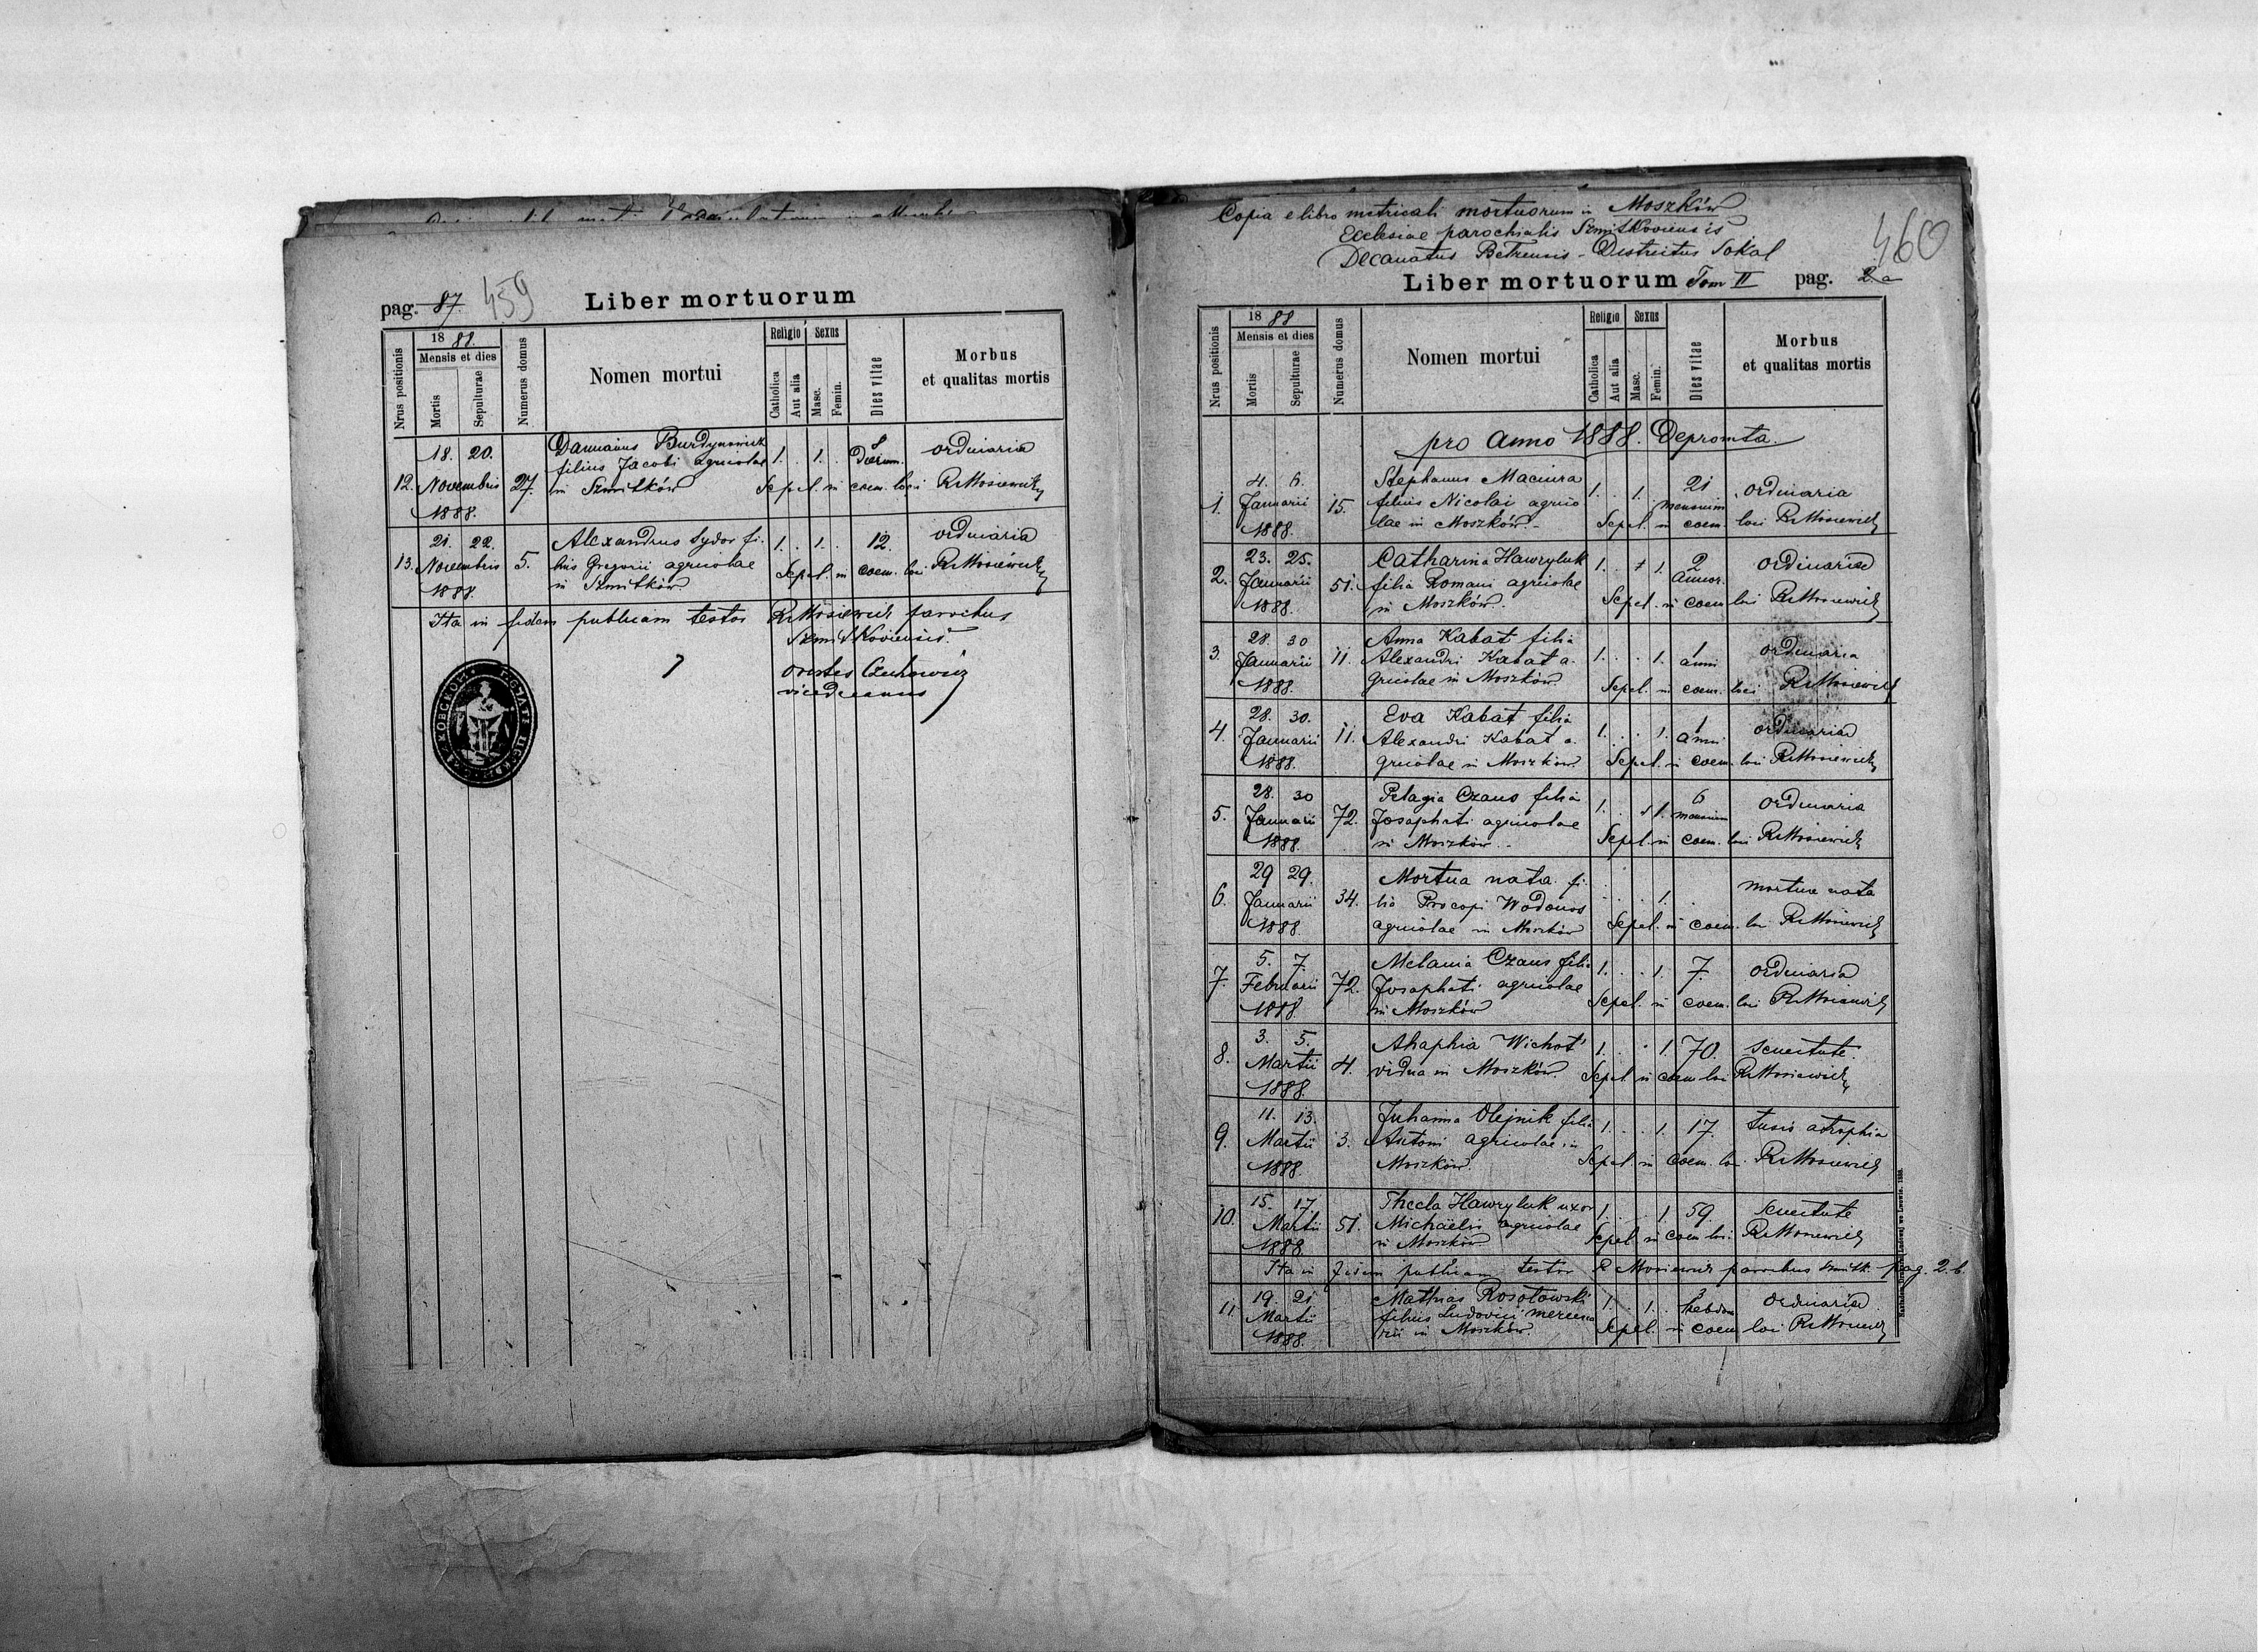 pag. 87. 459
Liber mortuorum
Nrus positionis
18 88.
Mensis et dies
Mortis
Sepulturae
Numerus domus
Nomen mortui
Religio
Catholica
Aut alia
Sexus
Masc.
Femin.
Dies vitae
Morbus
et qualitas mortis
12. 18. 20. Novembris 1888. 27.
Damianus Burdynowicz
filius Jacobi agricolae
in Szmitków
1. . 1. . 8 Dierum. ordinaria
Sepel. in coem. loci RMosiewicz
13. 21. 22. Novembris 1888. 5.
Alexandrus Sydor fi-
lius Gregorii agricolae
in Szmitków
1. . 1. . 12. ordinaria
Sepel. in coem. loci RMosiewicz
Ita in fidem publicam testor RMosiewicz parochus
Szmitkoviensis.
Orestes Czechowicz
vicedecanus
Copia e libro metricali mortuorum in Moszków
Ecclesiae parochialis Szmitkoviensis
Decanatus Belzensis - Districtus Sokal
460
Liber mortuorum Tom II pag. 2a
Nrus positionis
18 88
Mensis et dies
Mortis
Sepulturae
Numerus domus
Nomen mortui
Religio
Catholica
Aut alia
Sexus
Masc.
Femin.
Dies vitae
Morbus
et qualitas mortis
pro anno 1888. Depromta.
1. 4. 6. Januarii 1888. 15.
Stephanus Maciura
filius Nicolai agrico
lae in Moszków.
1. . 1. . 21 mensium ordinaria
Sepel. in coem. loci RMosiewicz
2. 23. 25. Januarii 1888. 51.
Catharina Hawryluk
filia Romani agricolae
in Moszków.
1. . 1. 2 annor. ordinaria
Sepel. in coem. loci RMosiewicz
3. 28. 30 Januarii 1888. 11.
Anna Kabat filia
Alexandri Kabat a-
gricolae in Moszków
1. . . 1. 1 anni ordinaria
Sepel. in coem. loci RMosiewicz
4. 28. 30. Januarii 1888. 11.
Eva Kabat filia
Alexandri Kabat a-
gricolae in Moszków
1. . . 1. 1 anni ordinaria
Sepel. in coem. loci RMosiewicz
5. 28. 30 Januarii 1888. 72.
Pelagia Czaus filia
Josaphati agricolae
in Moszków.
1. . 1. 6 mensium ordinaria
Sepel. in coem. loci RMosiewicz
6. 29 29. Januarii 1888. 34.
Mortua nata fi-
lia Procopi Wodonos
agricolae in Moszków
. . . 1. . mortua nata
Sepel. in coem. loci RMosiewicz
7. 5. 7. Februarii 1888 72.
Melania Czaus filia
Josaphati agricolae
in Moszków
1. . . 1. 7. ordinaria
Sepel. in coem. loci RMosiewicz
8. 3. 5. Martii 1888. 4.
Ahaphia Wichot
vidua in Moszków.
1. . . 1. 70. senectute.
Sepel in coem loci RMosiewicz
9. 11. 13. Martii 1888. 3.
Juhanna Olejnik filia
Antoni agricolae in
Moszków.
1. . . 1. 17. tusis atrophia
Sepel. in coem. loci RMosiewicz
10. 15. 17. Martii 1888. 51.
Thecla Hawryluk uxor
Michaelis agricolae
in Moszków
1. . . 1. 59 senectute
Sepel in coem loci RMosiewicz
Ita in fidem publicam testor R Mosiewicz parochus Szmitk. pag. 2.b.
11. 19. 21. Martii 1888.
Mathias Rosolowski
filius Ludovici mercena
rii in Moszków.
1. . 1. . 3 hebdom ordinaria
Sepel. in coem loci RMosiewicz